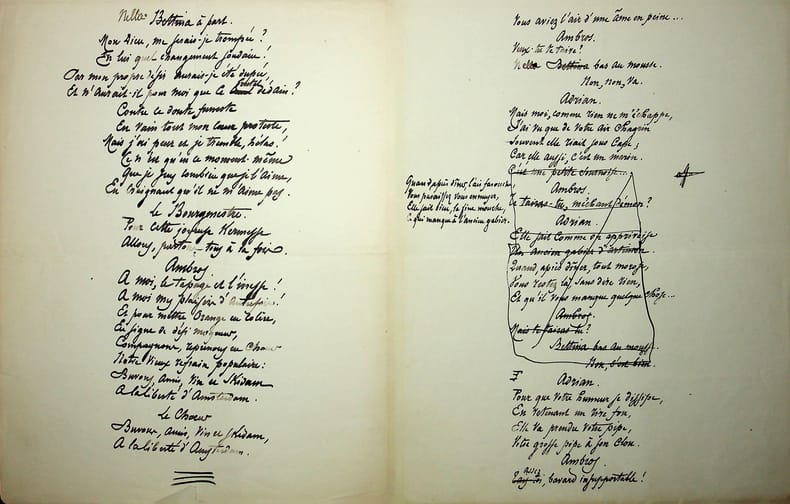 Nella Bettina à part.
Mon Dieu, me serais-je trompée ?
En lui quel changement soudain !
Par mon propre défi aurais-je été dupée,
Et n'aurait-il pour moi que ce dédain ?
Contre ce doute funeste
En vain tout mon cœur proteste,
Mais j'ai peur et je tremble, hélas !
Ce n'est qu'en ce moment même
Que je sens combien que je l'aime,
En craignant qu'il ne m'aime pas.
Le Bourgmestre.
Pour cette joyeuse Kermesse
Allons, partons tous à la fois.
Ambros
A moi, le tapage et l'ivresse !
A moi mes plaisirs d'autrefois !
Et pour mettre Orange en colère,
En signe de défi moqueur,
Compagnons, reprenons en Chœur
Notre vieux refrain populaire :
Buvons, Amis, Vin et Skidam
A la liberté d'Amsterdam.
Le Chœur
Buvons, amis, Vin et Skidam,
A la liberté d'Amsterdam.
Vous aviez l'air d'une âme en peine...
Ambros.
Veux-tu te taire !
Nella Bettina bas au mousse.
Non, non, va.
Adrian.
Mais moi, comme rien ne m'échappe,
J'ai vu que de votre air chagrin
Souvent elle riait sous cape ;
Car elle aussi, c'est un marin.
C'est une petite sournoise...
Ambros.
Te tairas-tu, méchant démon ?
Adrian.
Quand après dîner, l'air farouche,
Vous paraissez vous ennuyer,
Elle sait bien, la fine mouche,
Ce qui manque à l'ancien gabier.
Elle sait comme on apprivoise
Un ancien gabier d'artimon.
Quand, après dîner, tout morose,
Vous restez là, sans dire rien,
Et qu'il vous manque quelque chose...
Ambros.
Mais te tairas-tu ?
Bettina bas au mousse.
Non, c'est bien
Adrian.
Pour que votre humeur se dissipe,
En retenant un rire fou,
Elle va prendre votre pipe,
Votre grosse pipe à son clou.
Ambros.
assez, bavard insupportable !